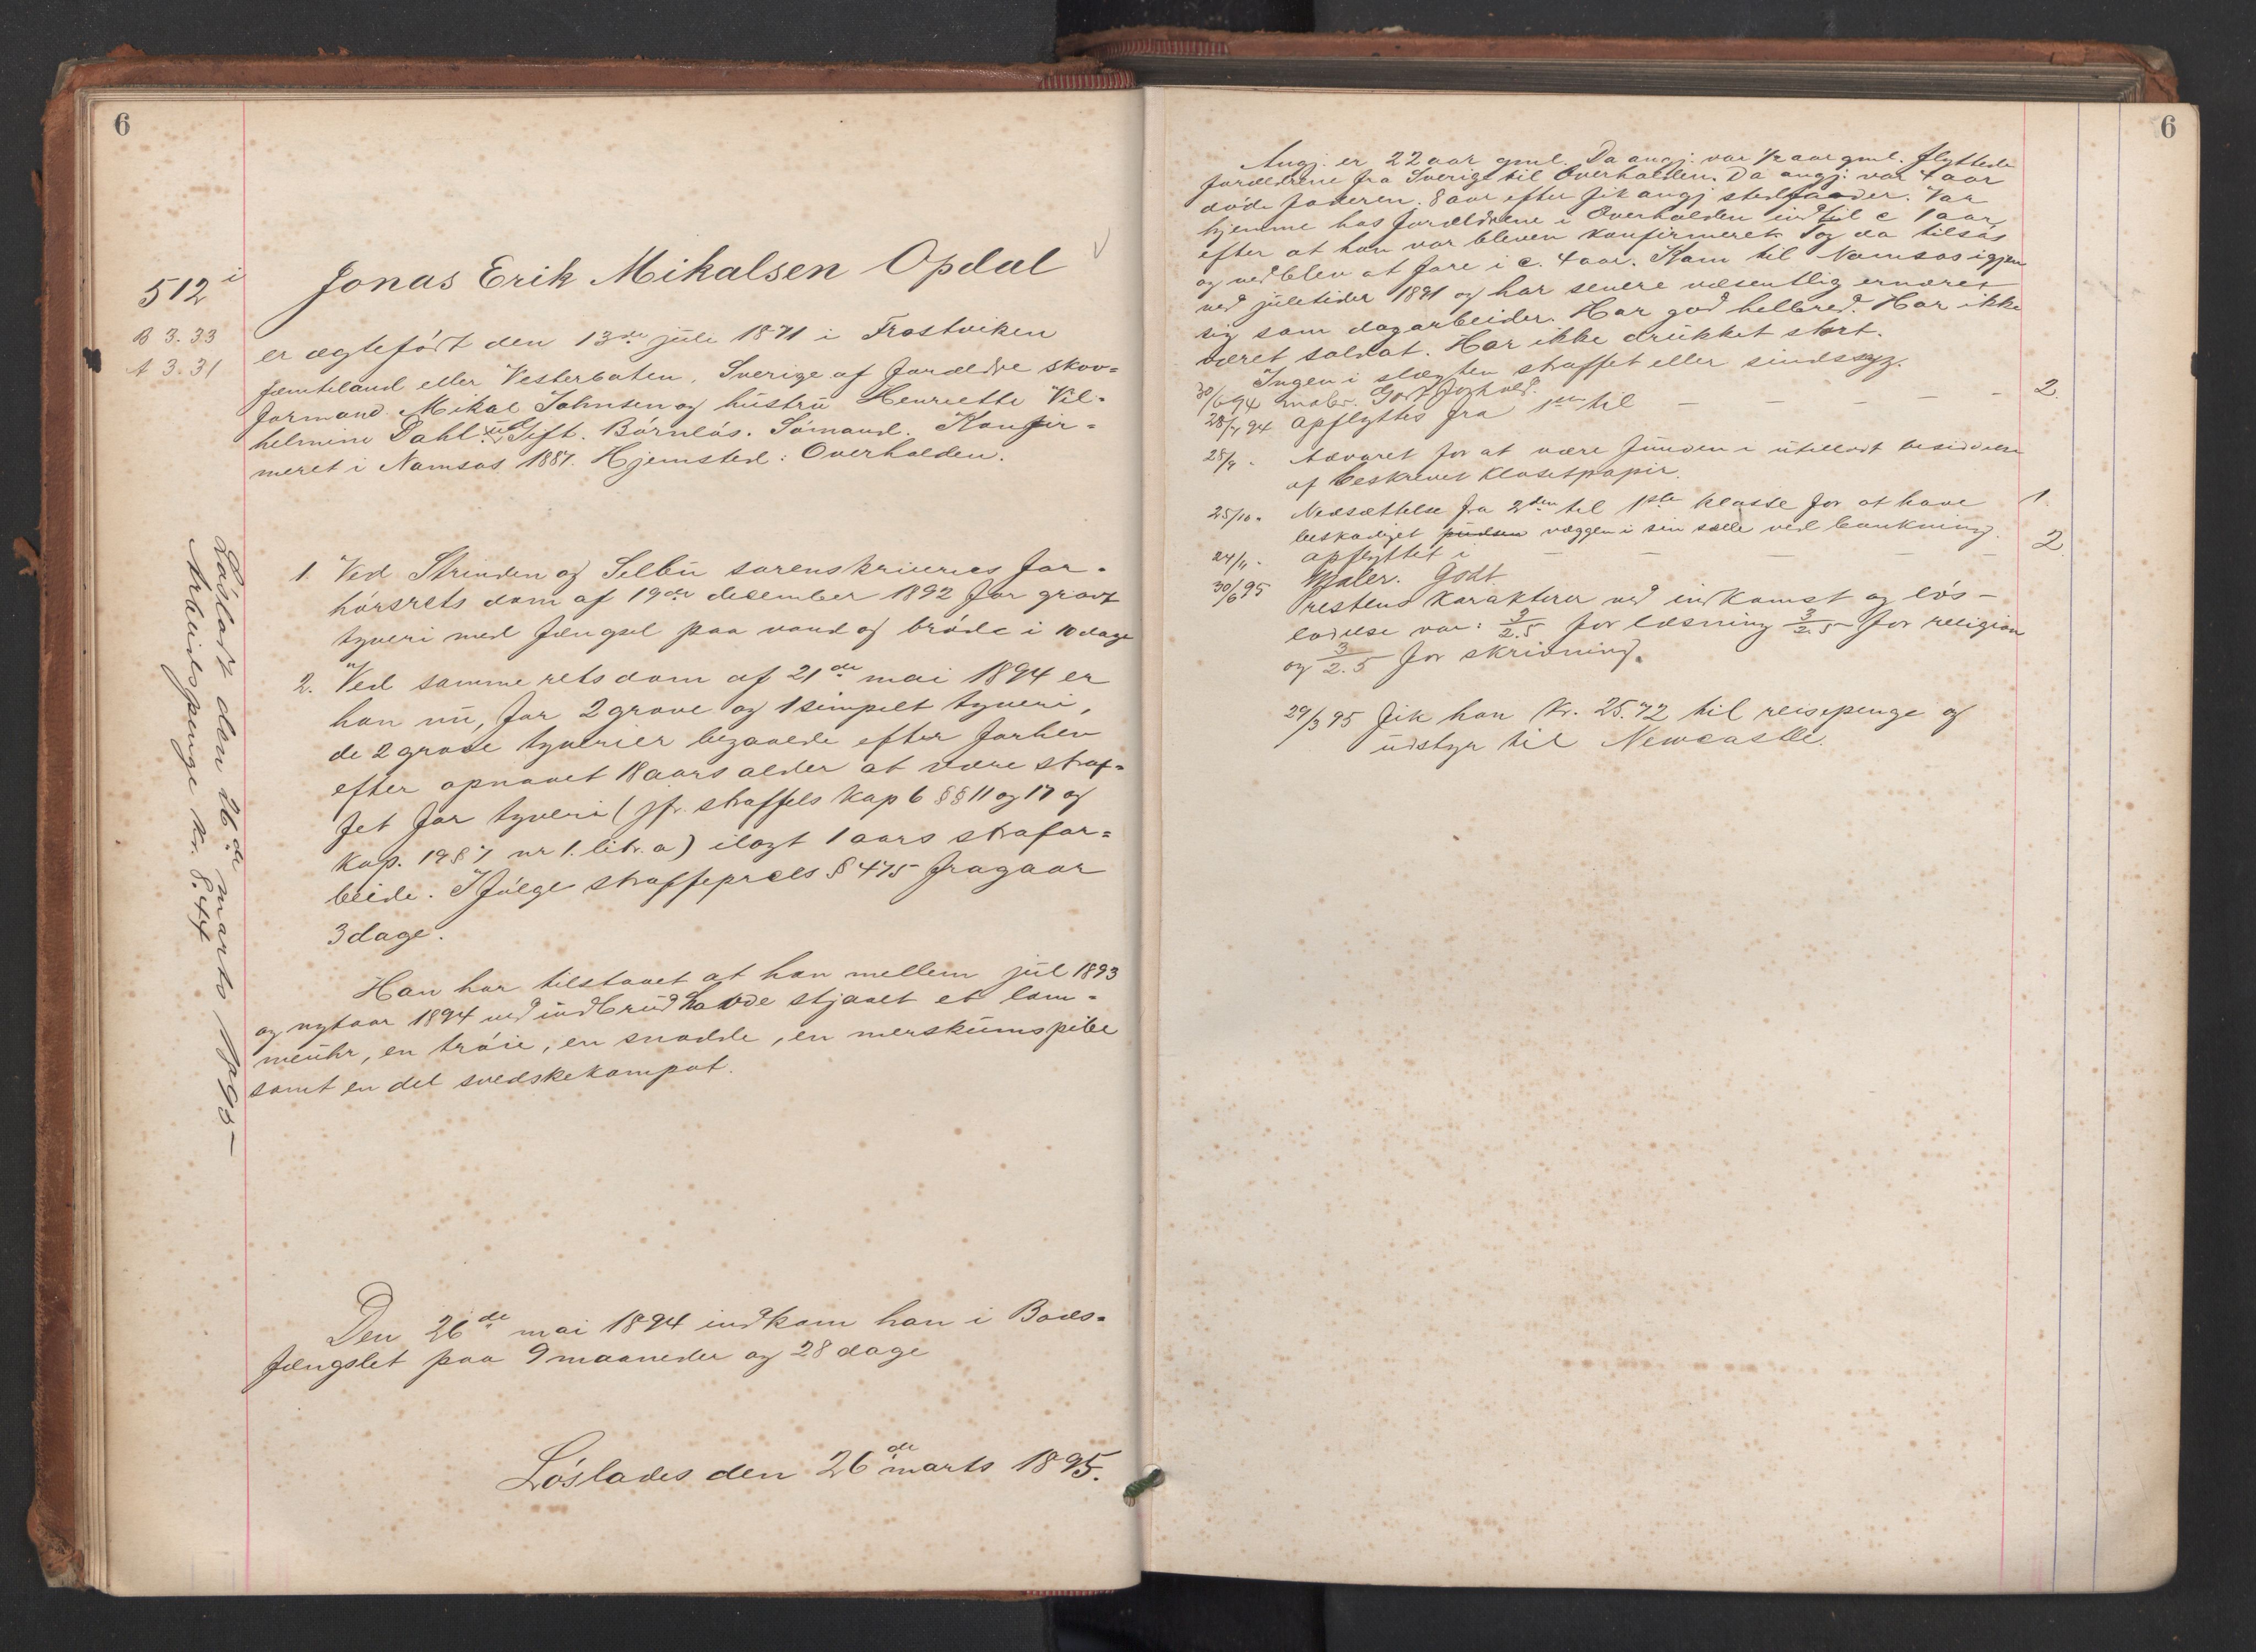 6
512 i
B 3.33
A 3.31
Jonas Erik Mikalsen Opdal
er ægtefødt den 13de juli 1871 i Frostviken
Jemteland eller Vesterboten, Sverige af forældre skov=
formand Mikal Johnsen og hustru Henriette Vil-
helmine Dahl. ugift. Barnløs. Sømand. Konfir=
meret i Namsos 1887. Hjemsted: Overhalden.
1. Ved Strinden og Selbu sorenskriveries for-
hørsrets dom af 19de december 1892 for grovt
tyveri med fængsel paa vand og brød i 10 dage
2. Ved samme rets dom af 21de mai 1894 er
han nu, for 2 grove og 1 simpelt tyveri,
de 2 grove tyverier begaaede efter forhen
efter opnaaet 18 aars alder at være straf=
fet for tyveri (jfr. straffels kap 6 §§ 11 og 17 og
kap. 19 § 7 nr 1. litr. a) ilagt 1 aars strafar=
beide. Ifølge straffeprcls § 475 fragaar
3 dage.
Han har tilstaaet at han mellem jul 1893
og nytaar 1894 ved indbrud havde stjaalet et lom=
meuhr, en trøie, en snadde, en merskumspibe
samt en del svedskekompot.
Den 26de mai 1894 indkom han i Bods=
fængslet paa 9 maaneder og 28 dage
Løslades den 26de marts 1895.
Løsladt den 26de marts 1895-
Arbeidspenge kr. 8.44
6
Angj. er 22 aar gml. Da angj. var 1/2 aar gml. flyttede
forældrene fra Sverige til Overhalden. Da angj. var 4 aar
døde faderen. 8 aar efter fik angj stedfader. Var
hjemme hos forældrene i Overhalden indtil c 1 aar
efter at han var bleven konfirmeret og da tilsøs
og vedblev at fare i c. 4 aar. Kom til Namsos igjen
ved juletider 1891 og har senere væsentlig ernæret
sig som dagarbeider. Har god helbred. Har ikke
været soldat. Har ikke drukket stort.
Ingen i slægten straffet eller sindssyg.
30/6 94 maler. Godt forhold.
28/7 94 Opflyttes fra 1ste til - - - - - 2.
28/9 - Advaret for at være funden i utilladt besiddelse
af beskrevet klosetpapir.
25/10 - Nedsættelse fra 2den til 1ste klasse for at have 1.
beskadiget pudsen væggen i sin celle ved bankning.
24/11 - opflyttet i - - - - - 2.
30/6 95 Maler. Godt.
Prestens karakterer ved indkomst og løs-
ladelse var: 3/2.5 for læsning 3/2.5 for religion
og 3/2.5 for skrivning.
29/3 95 fik han Kr. 25.72 til reisepenge og
udstyr til Newcastle.